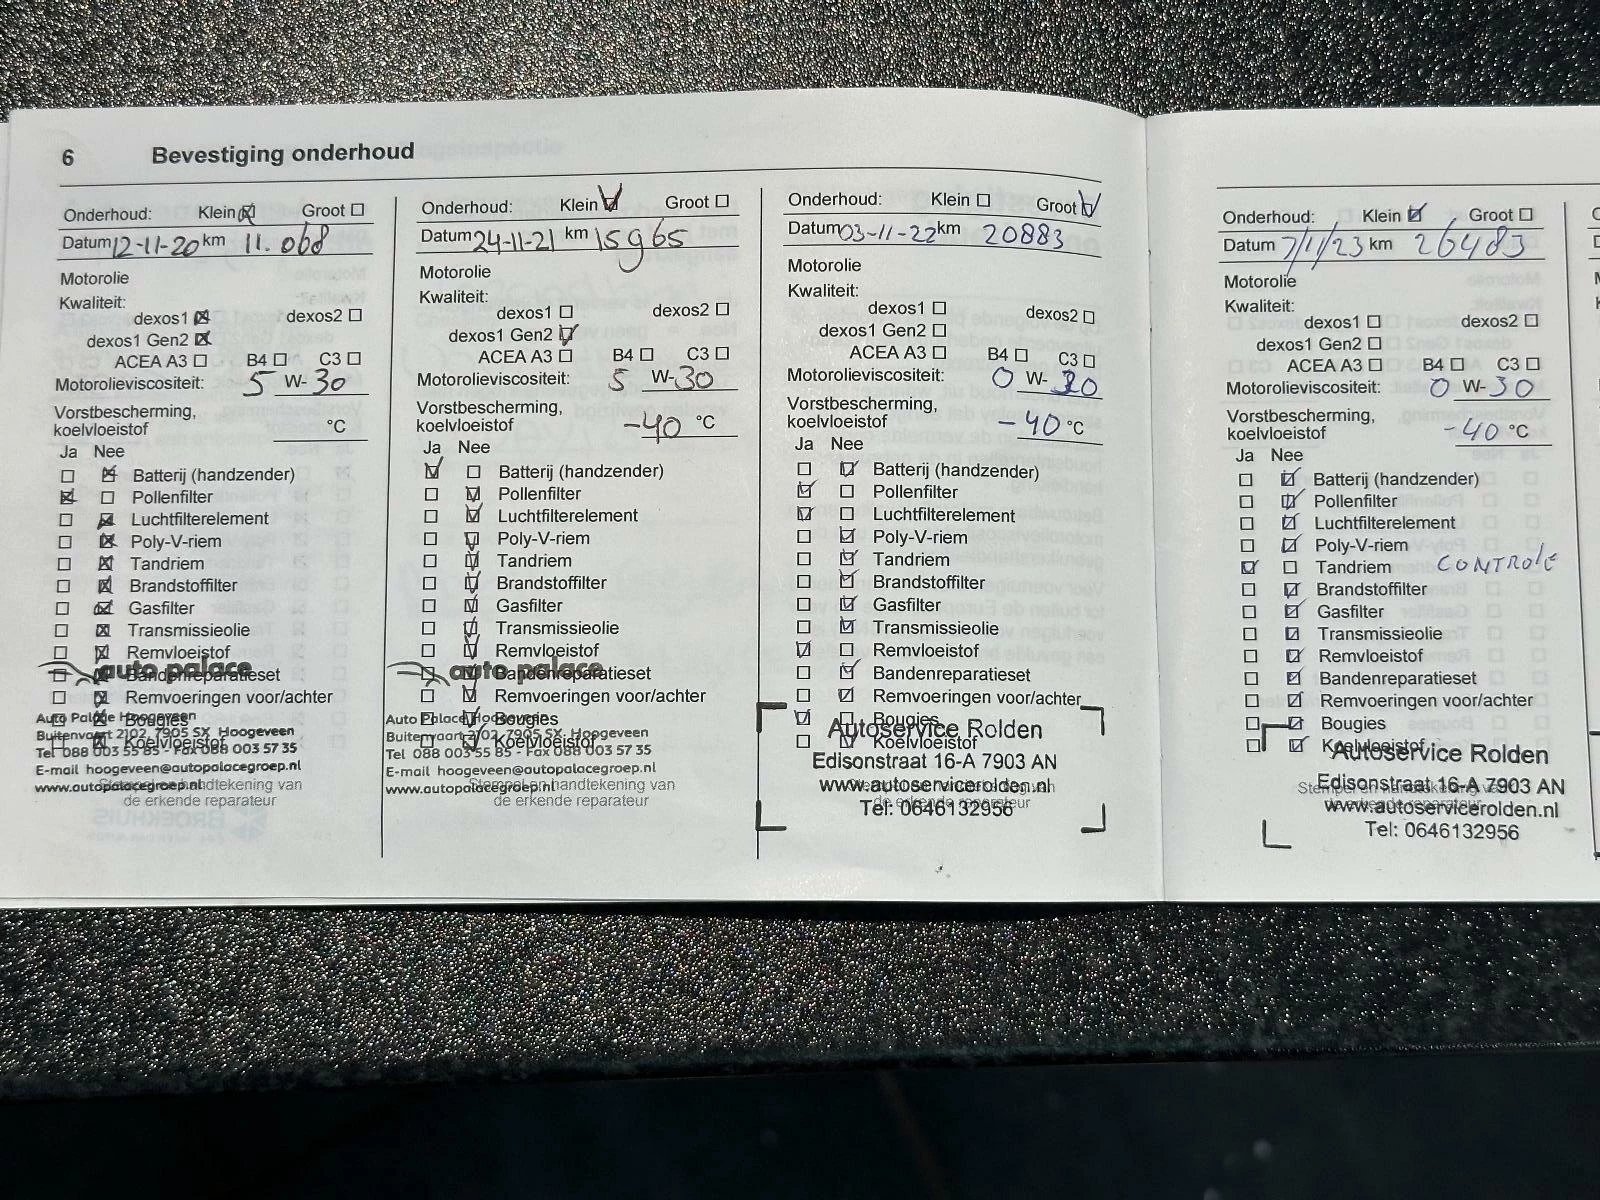 6 Bevestiging onderhoud
Onderhoud: Klein Groot
Datum 12-11-20 km 11.068
Motorolie
Kwaliteit:
dexos1 dexos2
dexos1 Gen2
ACEA A3 B4 C3
Motorolieviscositeit: 5 W-30
Vorstbescherming,
koelvloeistof °C
Ja Nee
Batterij (handzender)
Pollenfilter
Luchtfilterelement
Poly-V-riem
Tandriem
Brandstoffilter
Gasfilter
Transmissieolie
Remvloeistof
auto palace
Bandenreparatieset
Remvoeringen voor/achter
Auto Palace Hoogeveen
Bougies
Buitenvaart 2102, 7905 SX Hoogeveen
Koelvloeistof
Tel 088 003 55 85 - Fax 088 003 57 35
E-mail hoogeveen@autopalacegroep.nl
www.autopalacegroep.nl
Stempel en handtekening van
de erkende reparateur
Onderhoud: Klein Groot
Datum 24-11-21 km 15965
Motorolie
Kwaliteit:
dexos1 dexos2
dexos1 Gen2
ACEA A3 B4 C3
Motorolieviscositeit: 5 W-30
Vorstbescherming,
koelvloeistof -40 °C
Ja Nee
Batterij (handzender)
Pollenfilter
Luchtfilterelement
Poly-V-riem
Tandriem
Brandstoffilter
Gasfilter
Transmissieolie
Remvloeistof
auto palace
Bandenreparatieset
Remvoeringen voor/achter
Auto Palace Hoogeveen
Bougies
Buitenvaart 2102, 7905 SX Hoogeveen
Koelvloeistof
Tel 088 003 55 85 - Fax 088 003 57 35
E-mail hoogeveen@autopalacegroep.nl
www.autopalacegroep.nl
Stempel en handtekening van
de erkende reparateur
Onderhoud: Klein Groot
Datum 03-11-22 km 20883
Motorolie
Kwaliteit:
dexos1 dexos2
dexos1 Gen2
ACEA A3 B4 C3
Motorolieviscositeit: 0 W-30
Vorstbescherming,
koelvloeistof -40 °C
Ja Nee
Batterij (handzender)
Pollenfilter
Luchtfilterelement
Poly-V-riem
Tandriem
Brandstoffilter
Gasfilter
Transmissieolie
Remvloeistof
Bandenreparatieset
Remvoeringen voor/achter
Bougies
Autoservice Rolden
Koelvloeistof
Edisonstraat 16-A 7903 AN
www.autoservicerolden.nl
Stempel en handtekening van
de erkende reparateur
Tel: 0646132956
Onderhoud: Klein Groot
Datum 7/1/23 km 26483
Motorolie
Kwaliteit:
dexos1 dexos2
dexos1 Gen2
ACEA A3 B4 C3
Motorolieviscositeit: 0 W-30
Vorstbescherming,
koelvloeistof -40 °C
Ja Nee
Batterij (handzender)
Pollenfilter
Luchtfilterelement
Poly-V-riem
Tandriem CONTROLE
Brandstoffilter
Gasfilter
Transmissieolie
Remvloeistof
Bandenreparatieset
Remvoeringen voor/achter
Bougies
Koelvloeistof
Autoservice Rolden
Edisonstraat 16-A 7903 AN
Stempel en handtekening van
de erkende reparateur
www.autoservicerolden.nl
Tel: 0646132956